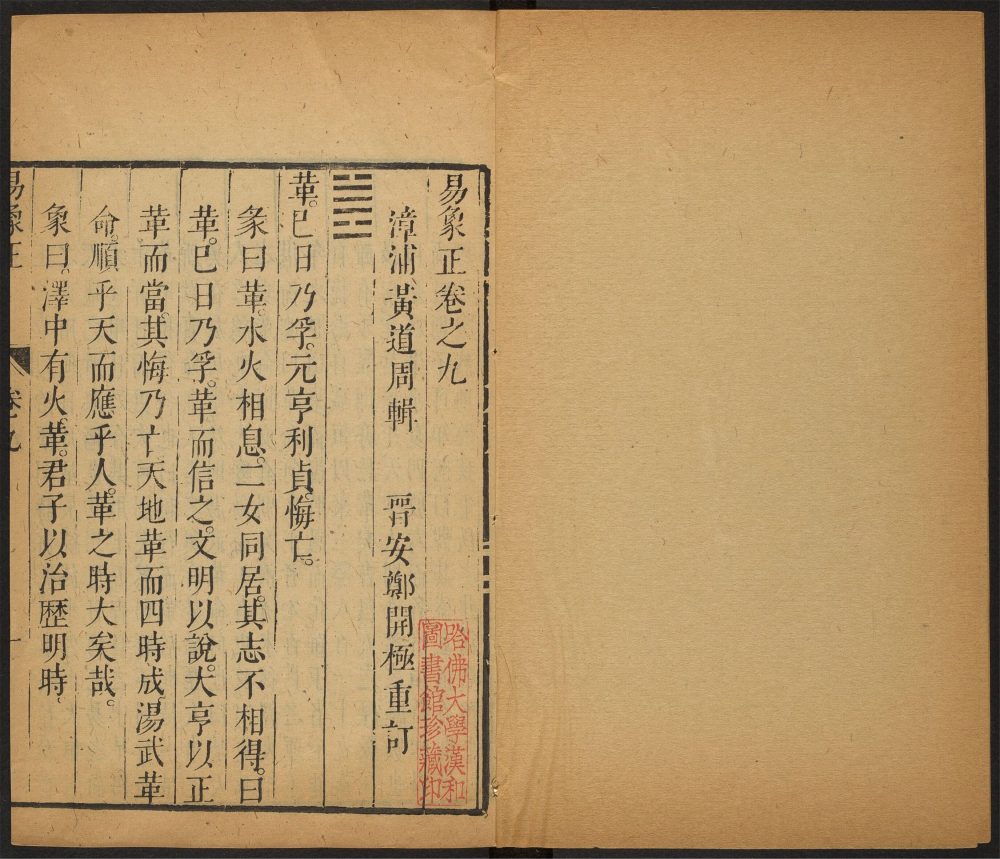 易象正卷之九
漳浦黃道周輯　晉安鄭開極重訂
哈佛大學漢和
圖書館珍藏印
䷰
革。巳日乃孚。元亨利貞。悔亡。
彖曰。革。水火相息。二女同居。其志不相得。曰
革。巳日乃孚。革而信之。文明以說。大亨以正
革而當。其悔乃亡。天地革而四時成。湯武革
命。順乎天而應乎人。革之時大矣哉。
象曰。澤中有火。革。君子以治歷明時。
易象正　卷九　一